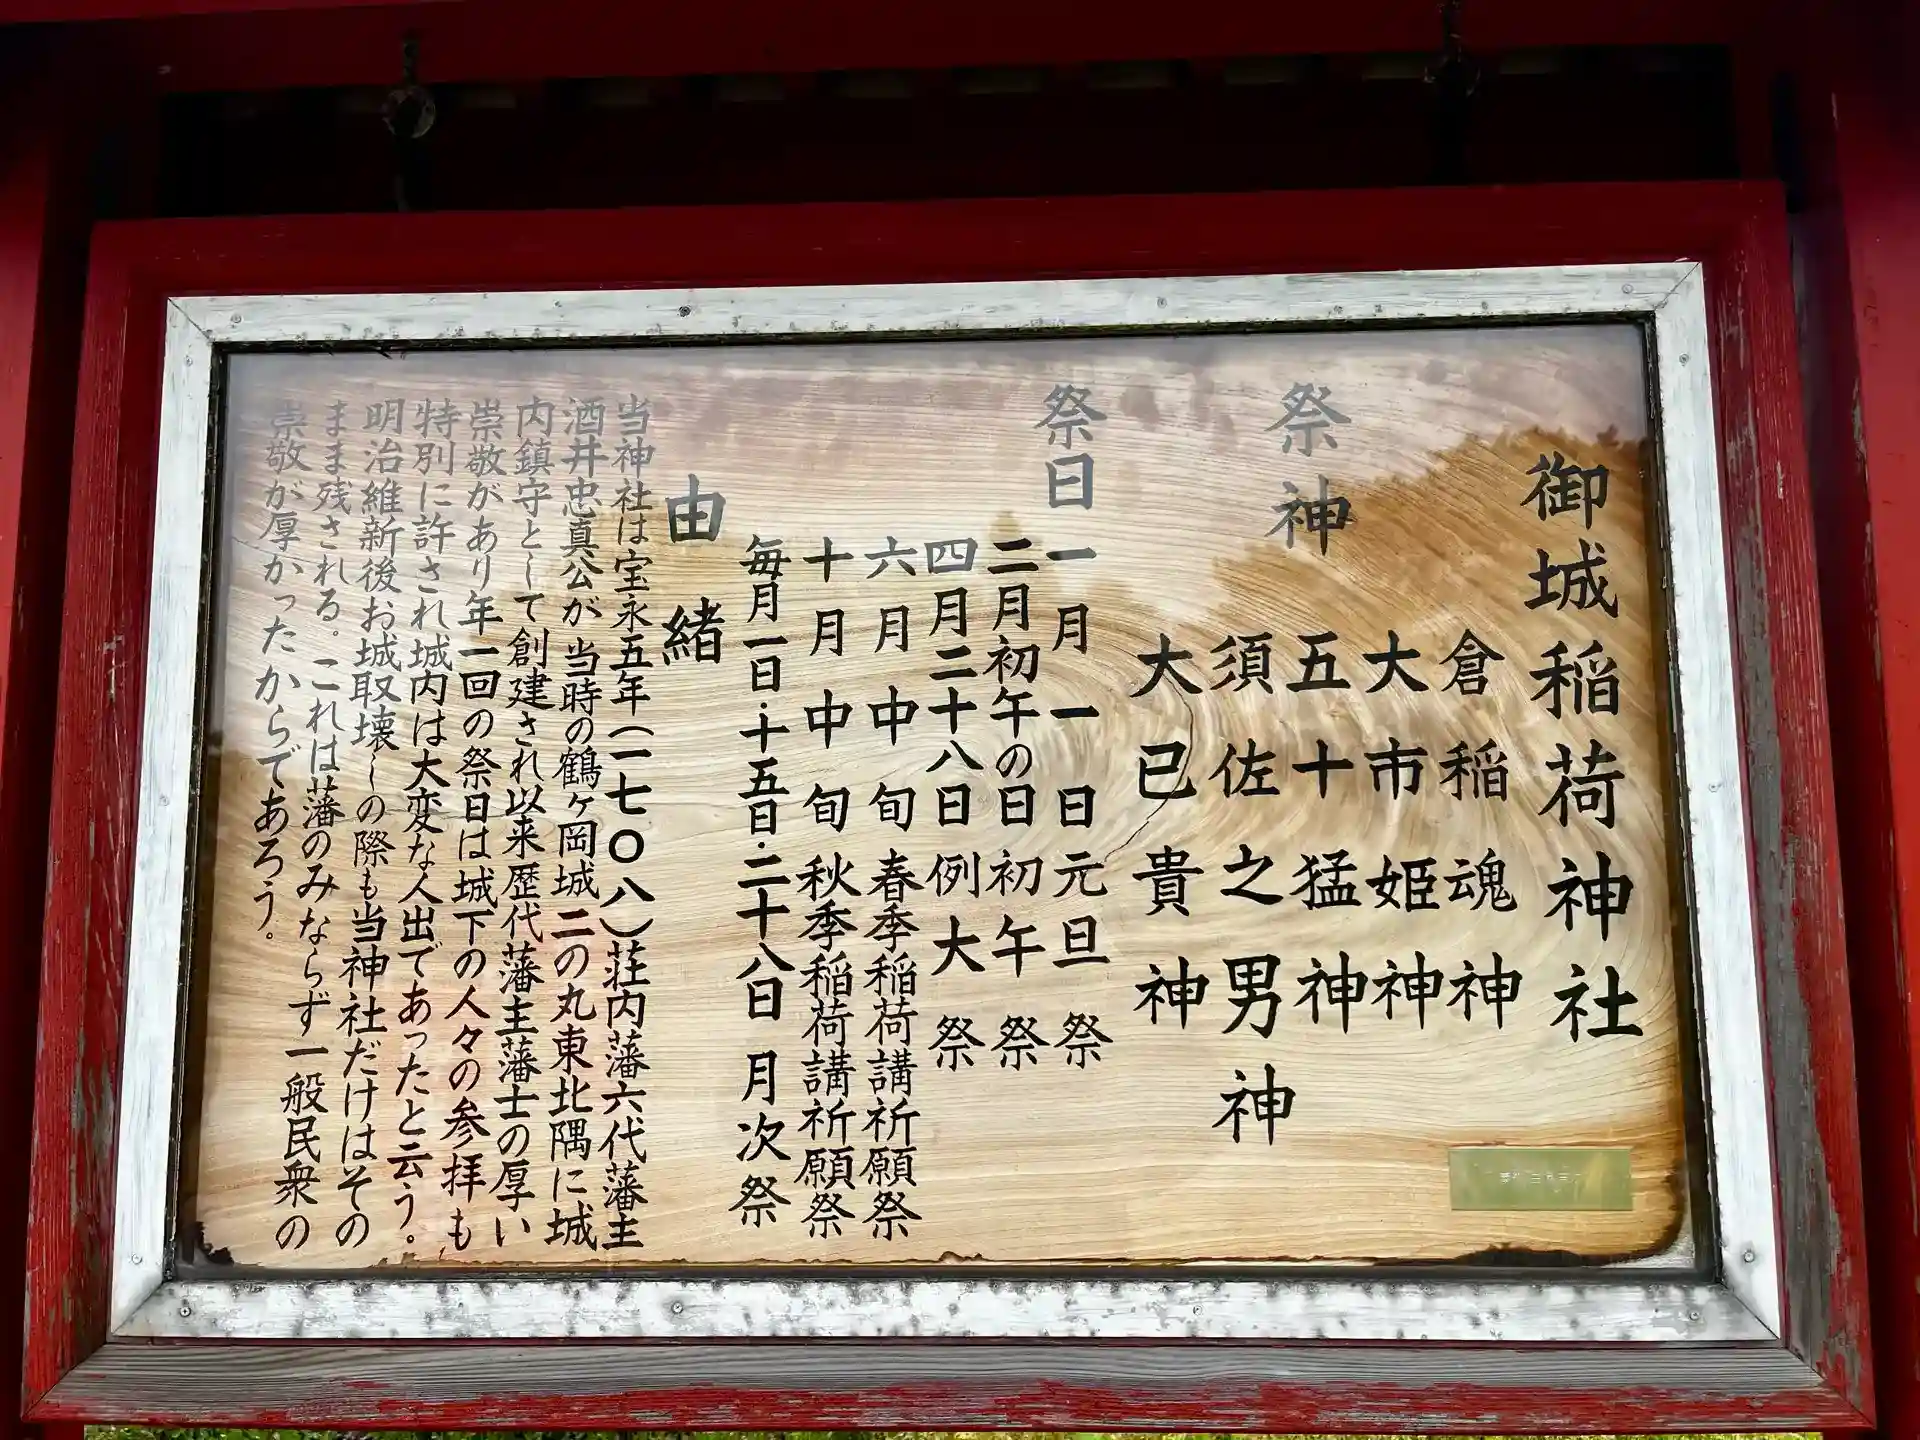 御城稲荷神社
祭神
倉稲魂神
大市姫神
五十猛神
須佐之男神
大已貴神
祭日
一月一日元旦祭
二月初午の日初午祭
四月二十八日例大祭
六月中旬春季稲荷講祈願祭
十月中旬秋季稲荷講祈願祭
毎月一日・十五日・二十八日月次祭
由緒
当神社は宝永五年(一七〇八)荘内藩六代藩主
酒井忠真公が当時の鶴ヶ岡城二の丸東北隅に城
内鎮守として創建され以来歴代藩主藩士の厚い
崇敬があり年一回の祭日は城下の人々の参拝も
特別に許され城内は大変な人出であったと云う。
明治維新後お城取壊しの際も当神社だけはその
まま残される。これは藩のみならず一般民衆の
崇敬が厚かったからであろう。